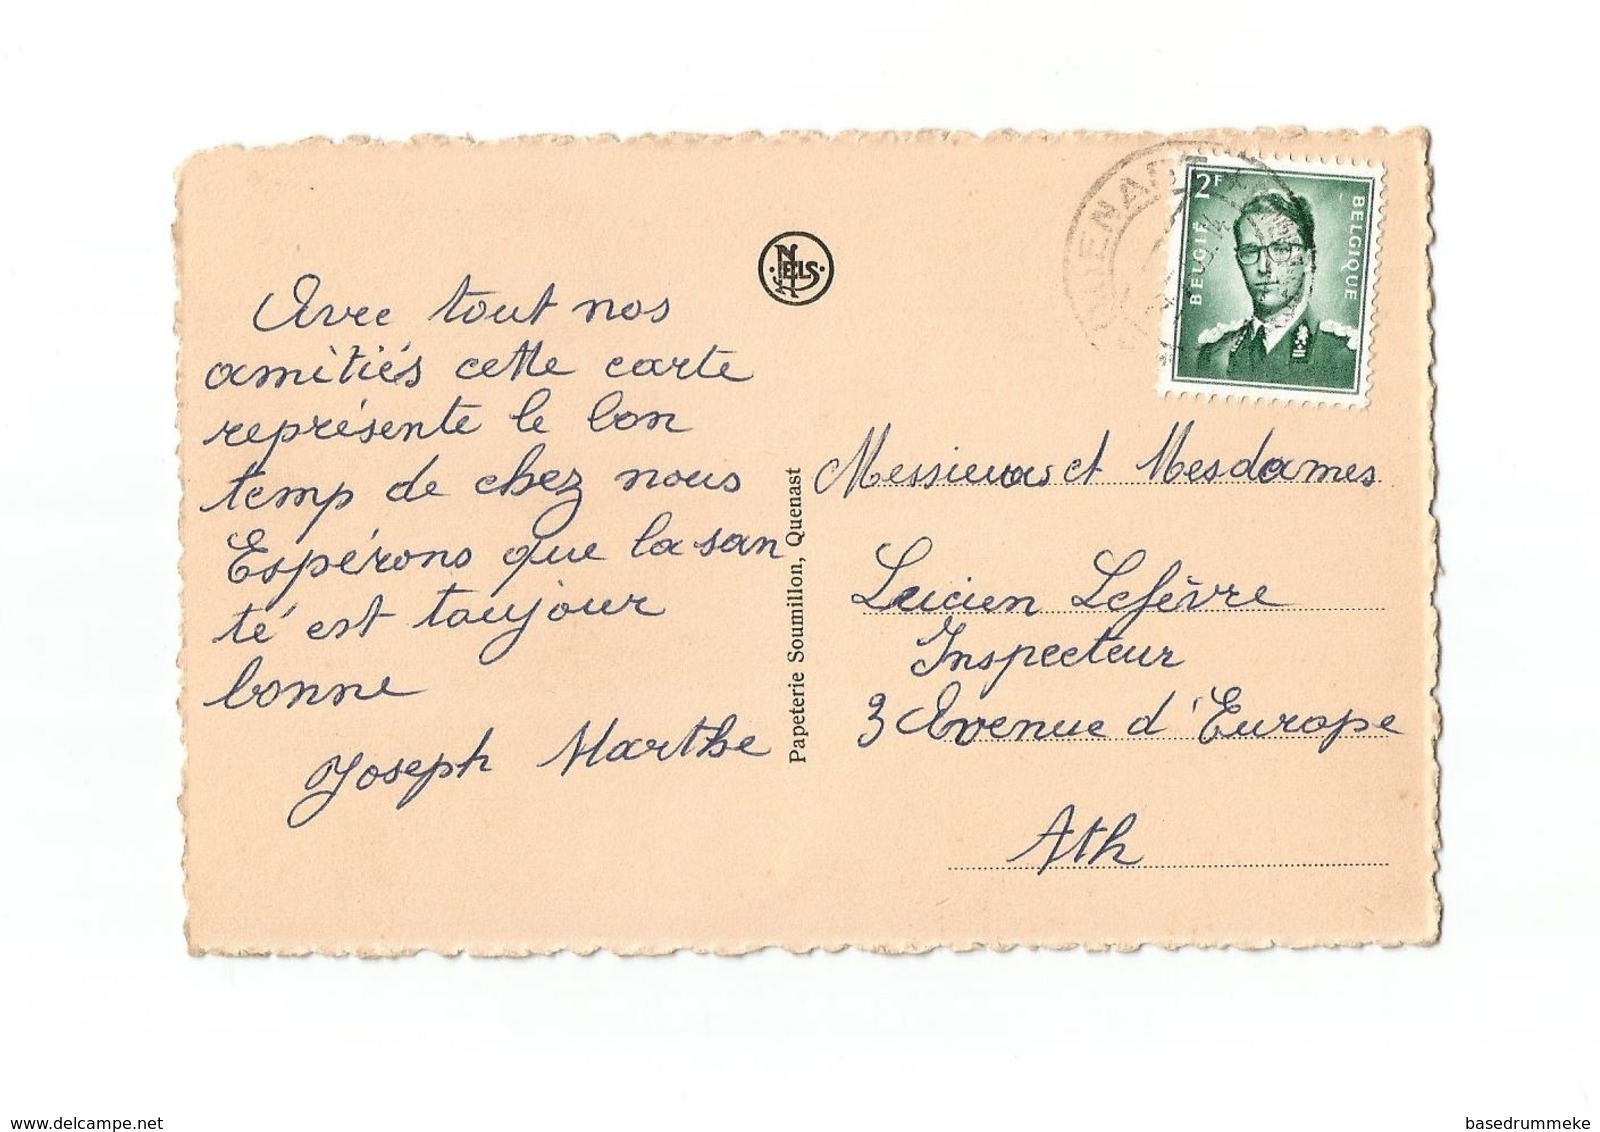 Avec tout nos
amitiés cette carte
représente le bon
temp de chez nous
Espérons que la san
té est toujour
bonne
Joseph Marthe
NELS
Papeterie Soumillon, Quenast
2F
BELGIE
BELGIQUE
Messieurs et Mesdames
Lucien Lefèvre
Inspecteur
3 Avenue d'Europe
Ath
www.delcampe.net
basedrummeke